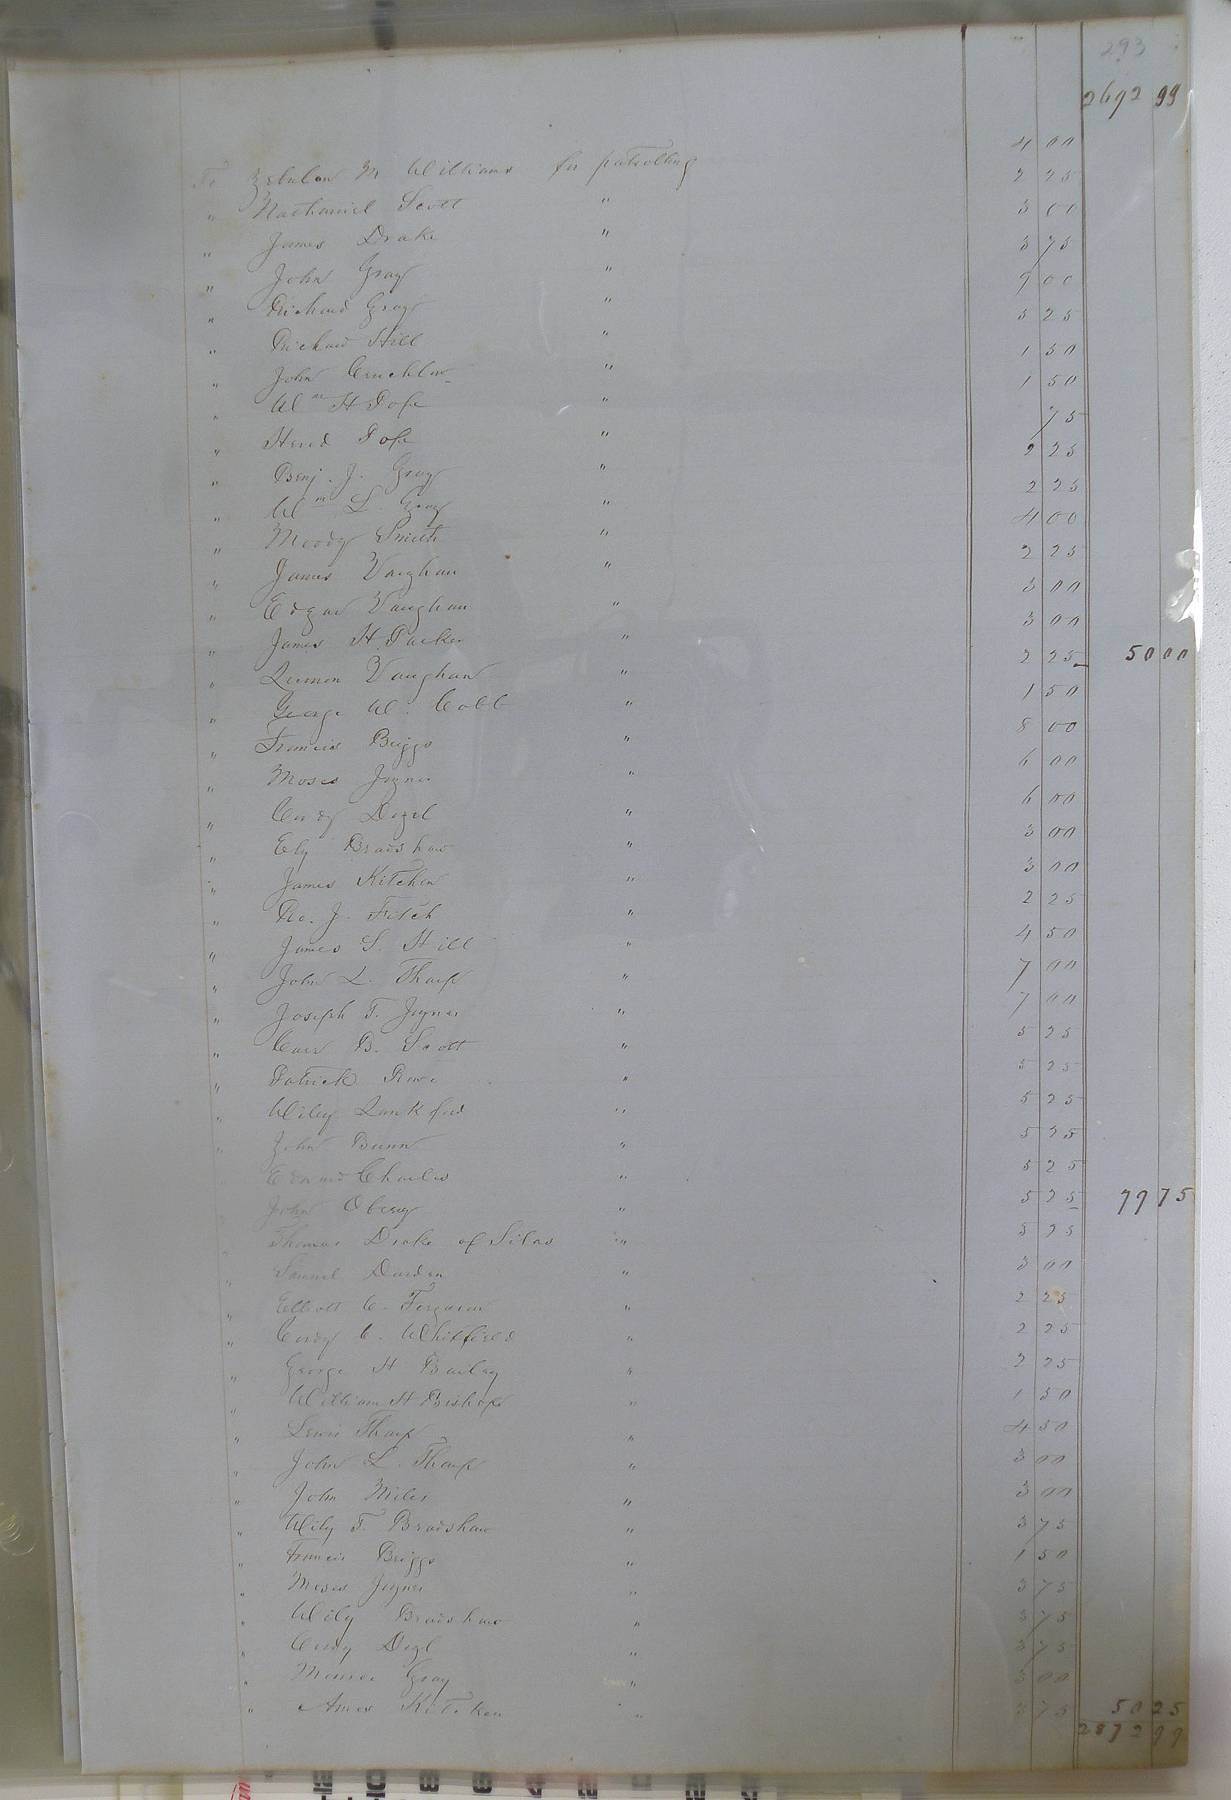 293
2692 99
To Zebulon M Williams for patrolling 4 00
" Nathaniel Scott " 2 25
" James Drake " 3 00
" John Gray " 3 75
" Richard Gray " 9 00
" Richard Hill " 5 25
" John Cruchlow " 1 50
" Wm H Pope " 1 50
" Pope " 75
" Benj. J. Gray " 2 25
" Wm L. Gray " 2 25
" Moody Smith " 4 00
" James Vaughan " 2 25
" Edgar Vaughan " 3 00
" James H. Parker " 3 00
" Lemon Vaughan " 2 25 50 00
" George W. Cobb " 1 50
" Francis Briggs " 8 00
" Moses Joyner " 6 00
" Cordy Dozl " 6 00
" Ely Bradshaw " 3 00
" James Kitchen " 3 00
" Ro. J. Fitch " 2 25
" James S. Hill " 4 50
" John L. Tharp " 7 00
" Joseph T. Joyner " 7 00
" Carr B. Scott " 5 25
" Patrick Rowe " 5 25
" Wiley Lankford " 5 25
" John Bunn " 5 25
" Edward Charles " 5 25
" John Oberry " 5 25 79 75
" Thomas Drake of Silas " 5 25
" Samuel Darden " 3 00
" Elliott C. Ferguson " 2 25
" Cordy C. Whitfield " 2 25
" George H Bailey " 2 25
" William H Bishop " 1 50
" Lewis Tharp " 4 50
" John L. Tharp " 3 00
" John Miles " 3 00
" Wily T. Bradshaw " 3 75
" Francis Briggs " 1 50
" Moses Joyner " 3 75
" Wily Bradshaw " 3 75
" Cordy Dozl " 3 75
" Monroe Gray " 3 00
" Amos Kitchen " 3 75 50 25
2872 99